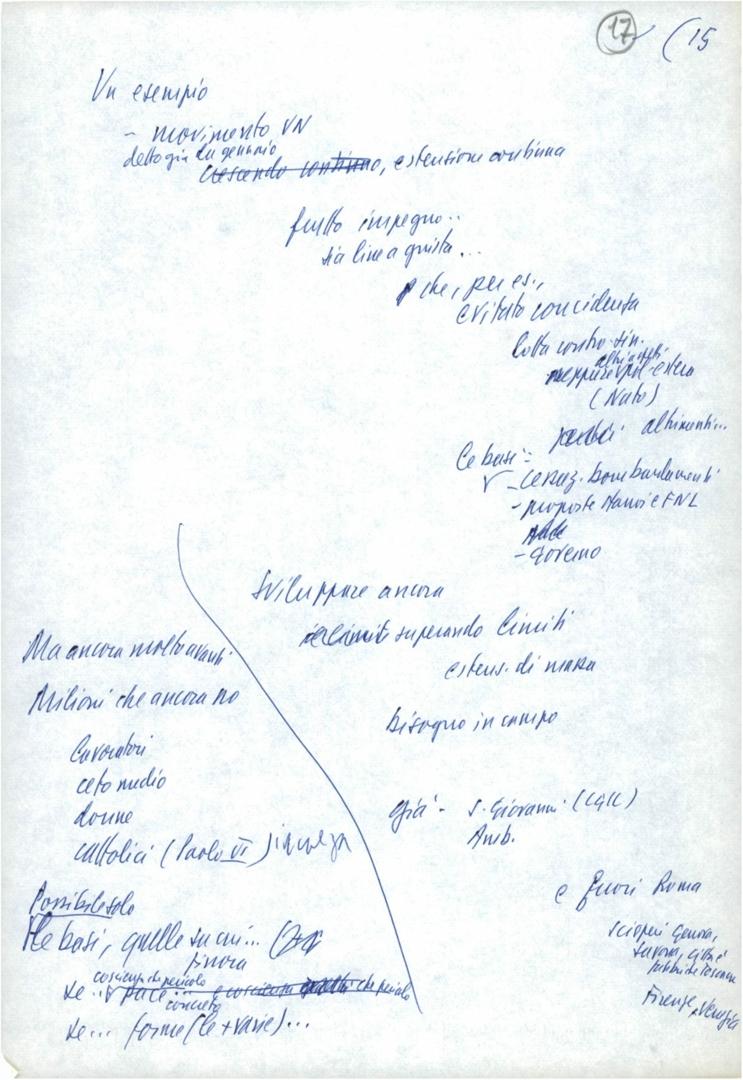 17 (15
Un esempio
- movimento VN
detto già da gennaio
Crescendo continuo, estensione continua
frutto impegno..
sia linea giusta...
che, per es.,
evitato coincidenza
lotta contro sin.
altri aspetti
neppure pol. estera
(Nato)
perché altrimenti...
Le basi:
- cessaz. bombardamenti
- proposte Hanoi e FNL
- governo
Sviluppare ancora
superando limiti
estens. di massa
bisogno in campo
già - S. Giovanni (CGIL)
Amb.
e fuori Roma
scioperi Genova,
Savona,
Firenze, Venezia
Ma ancora molto avanti
Milioni che ancora no
lavoratori
ceto medio
donne
cattolici (Paolo VI)
Possibile solo
le basi, quelle su cui...
sinora
coscienza che pericolo
se... pace e coscienza che pericolo
concreto
se... forme (le + varie)...